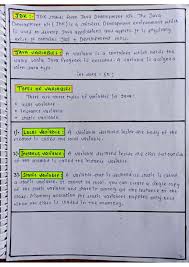 JDK :- JDK stands for Java Development Kit. The Java
Development Kit (JDK) is a software development environment which
is used to develop Java applications and applets. It is physically
exist. It contains JRE + development tools.
JAVA VARIABLES :- A variable is a container which holds the
value while Java Program is executed. A variable is assigned
with data type.
int data = 50 ;
TYPES OF VARIABLES
There are three types of variables in Java :
• local variable
• instance variable
• static variable
Local Variable : A variable declared inside the body of the
method is called local variable.
Instance Variable : A variable declared inside the class but outside
the method is called the instance variable.
Static Variable : A variable that is declared as static is called
a static variable. It cannot be local. You can create a single copy
of the static variable and share it among all the instances of the
class. Memory allocation for static variables happens only once
when the class is loaded in the memory.